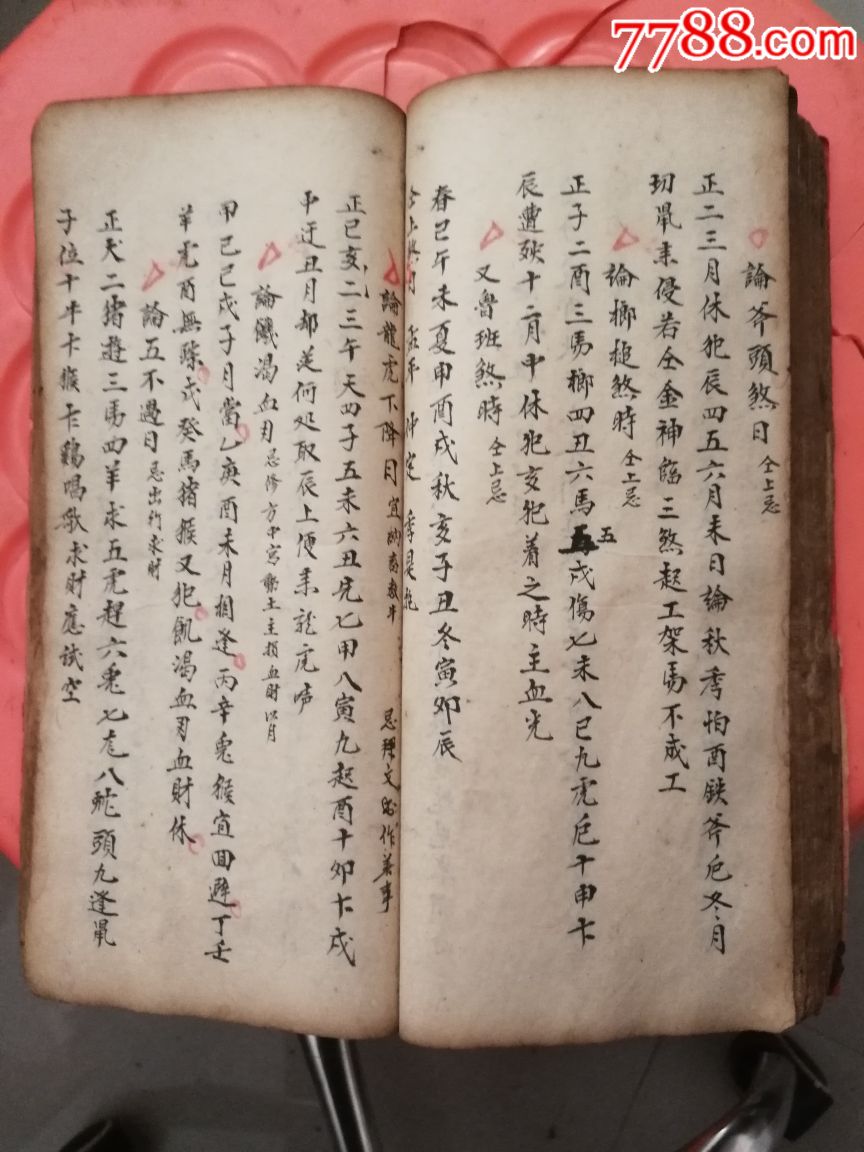 7788.com
論斧頭煞日 仝上忌
正二三月休犯辰四五六月未日論秋季怕酉鉄斧危冬月
切鼠来侵若仝金神臨三煞起工架馬不成工
論榔槌煞時 仝上忌
正子二酉三馬榔四丑六馬五戌傷七未八巳九虎危十申十
辰遭殃十二月中休犯亥犯着之時主血光
又魯班煞時 仝上忌
春巳午未夏申酉戌秋亥子丑冬寅卯辰
論龍虎下降月 宜納畜教牛 忌 作 事
正巳亥二三午天四子五未六丑先七甲八寅九起酉十卯十戌
中迂丑月却是何処取辰上便来龍虎啼
論饑渴血刃 忌修方中宮動土主損血財以月
甲己巳戌子月當乙庚酉未月相逢丙辛兎猴宜回避丁壬
羊虎酉無踪戊癸馬猪猴又犯飢渴血刃血財休
論五不遇日 忌出行求財
正犬二猪遊三馬四羊求五虎趕六兎七龙八蛇頭九逢鼠
子位十牛十猴十鷄唱歌求財應試空